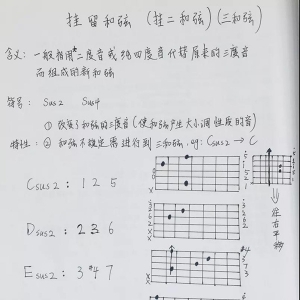 挂留和弦 (挂二和弦)(三和弦)
含义: 一般指用二度音或纯四度音代替原来的三度音
而组成的新和弦
符号: Sus2 Sus4
① 改变了和弦的三度音 (使和弦产生大小调性质的音)
特性: ② 和弦不稳定需进行到三和弦, eg: Csus2 → C
Csus2: 1 2 5
Dsus2: 2 3 6
Esus2: 3 #4 7
往右平移